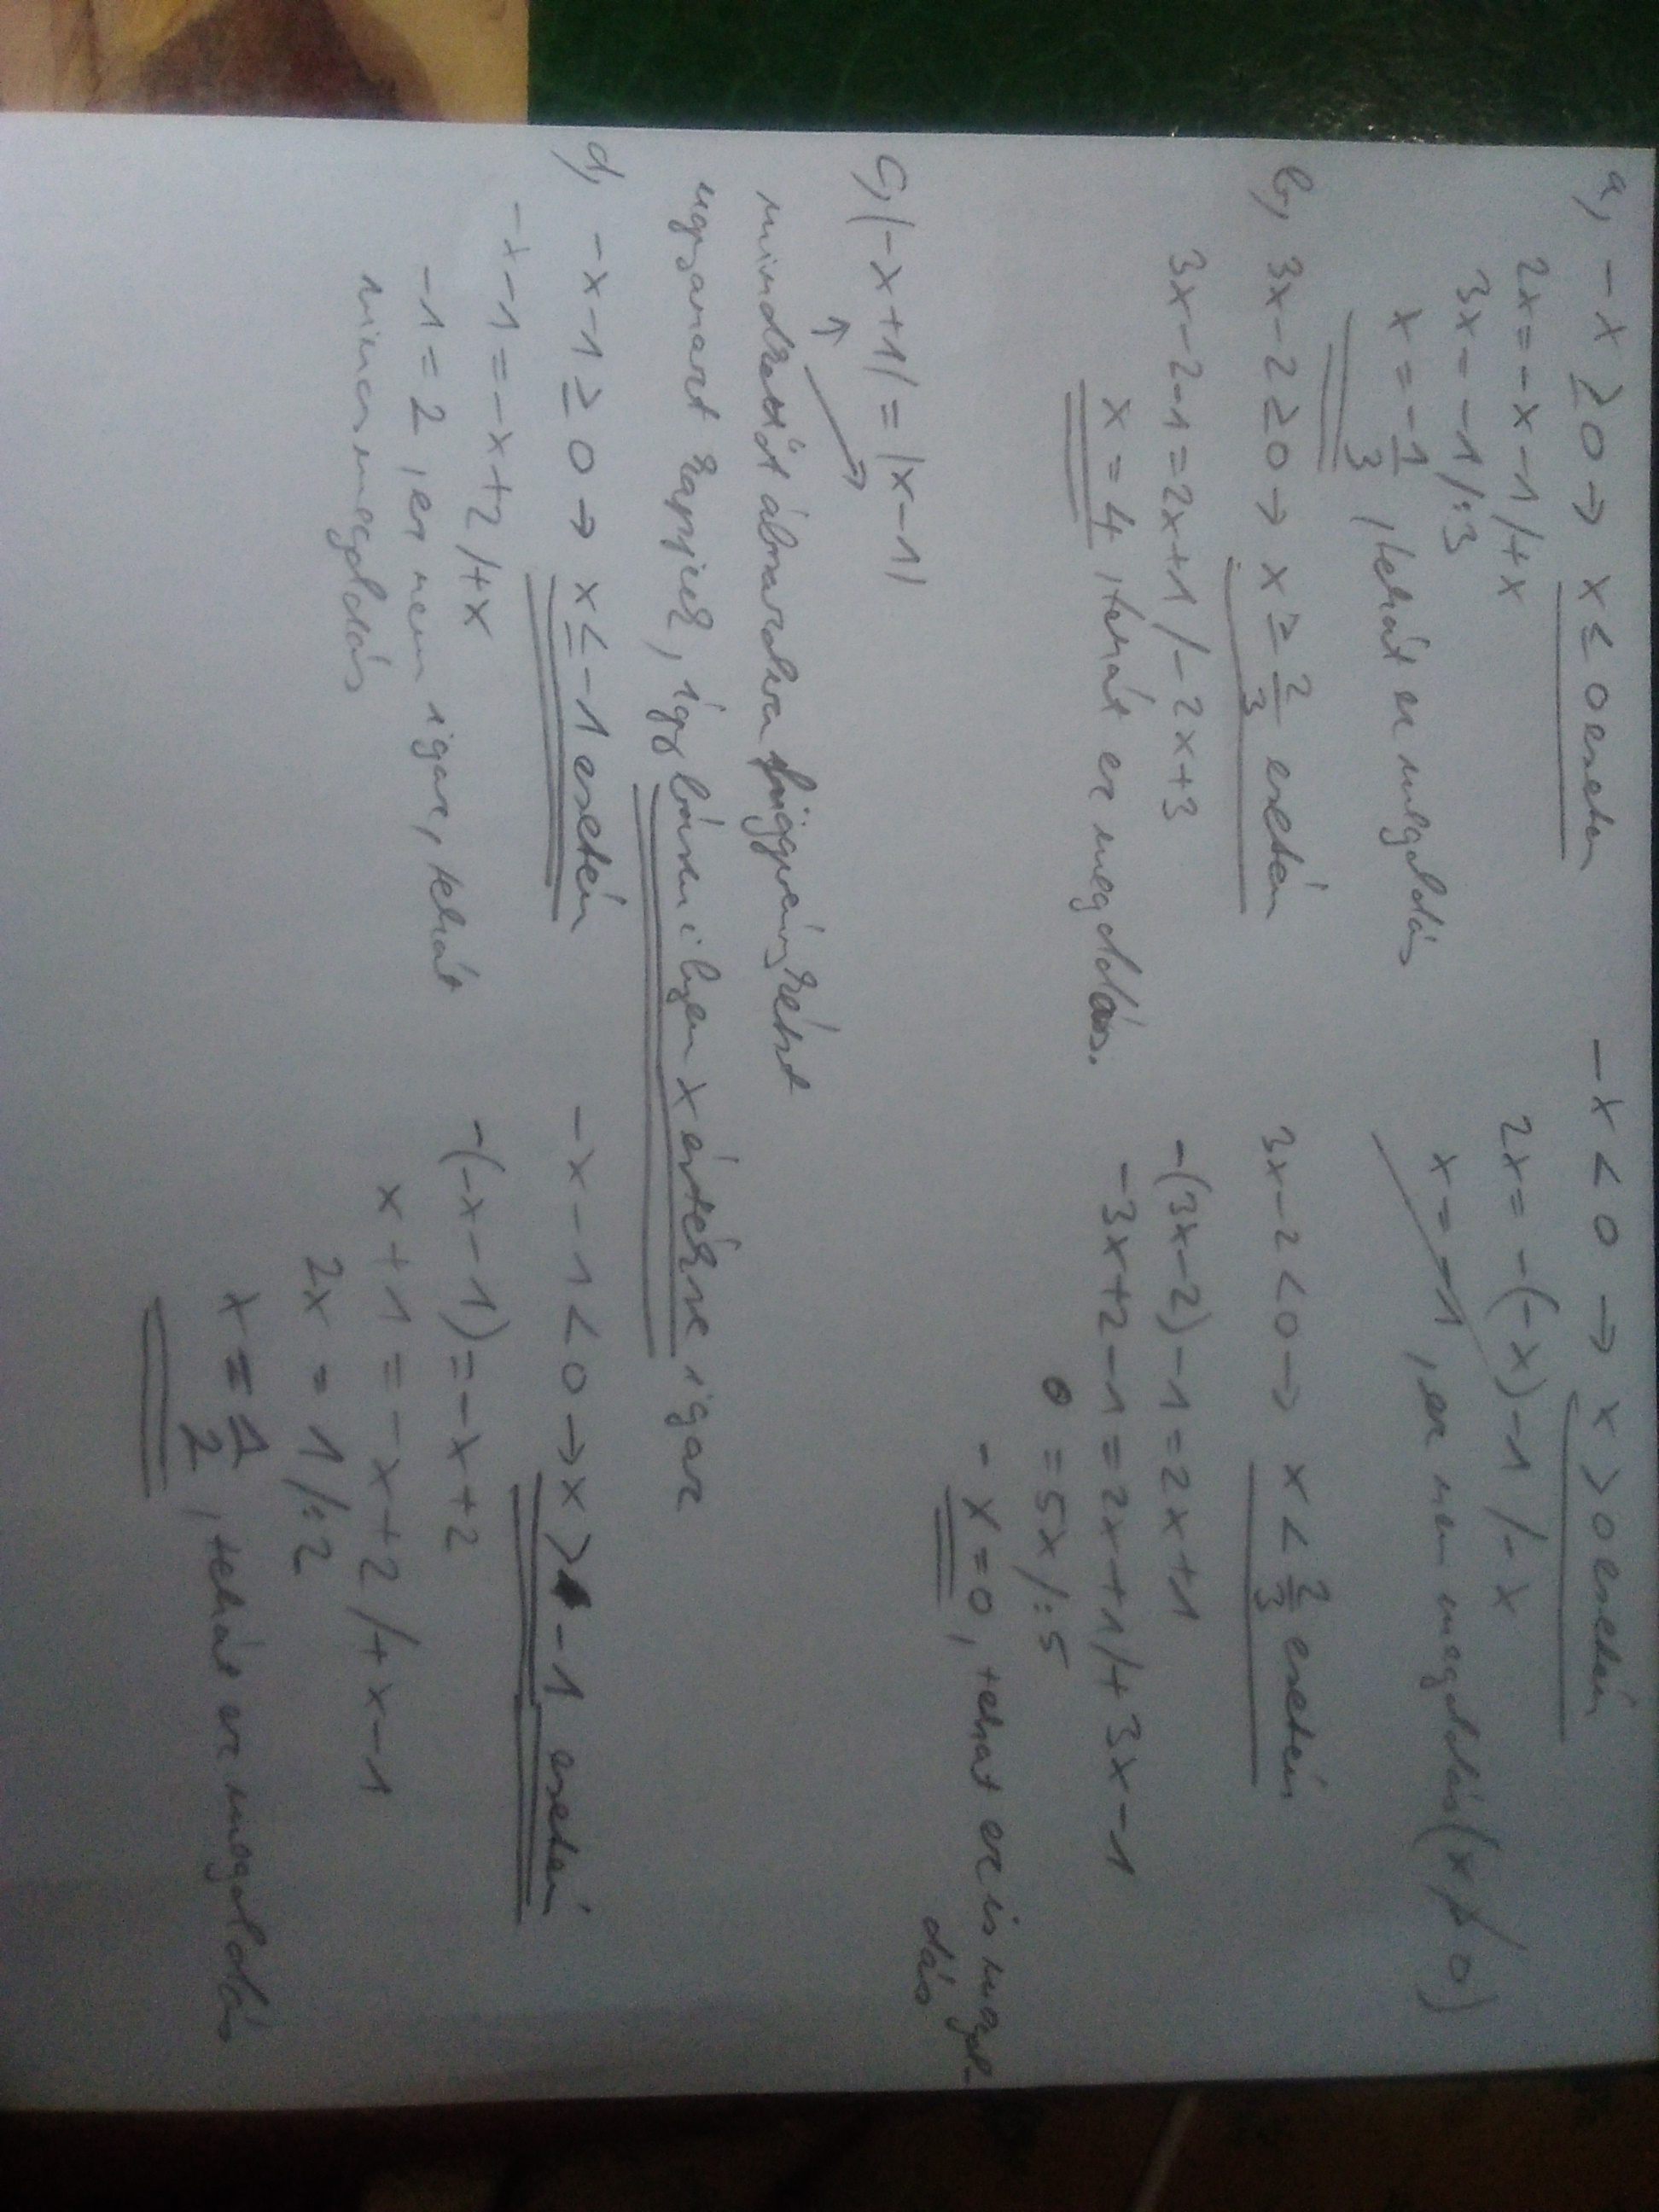 a, -x ≥ 0 → x ≤ 0 esetén
2x = -x - 1 /+x
3x = -1 /:3
x = -1/3, tehát ez megoldás
-x < 0 → x > 0 esetén
2x = -(-x) - 1 /-x
x = -1, ez nem megoldás (x ≯ 0)
b, 3x - 2 ≥ 0 → x ≥ 2/3 esetén
3x - 2 - 1 = 2x + 1 /-2x+3
x = 4, tehát ez megoldás.
3x - 2 < 0 → x < 2/3 esetén
-(3x - 2) - 1 = 2x + 1
-3x + 2 - 1 = 2x + 1 /+3x-1
0 = 5x /:5
- x = 0, tehát ez is megol-
dás
c, |-x+1| = |x-1|
mindkettőt ábrázolva függvényként
ugyanazt kapjuk, így bármilyen x értékre igaz
d, -x - 1 ≥ 0 → x ≤ -1 esetén
-x - 1 = -x + 2 /+x
-1 = 2, ez nem igaz, tehát
nincs megoldás
-x - 1 < 0 → x > -1 esetén
-(-x - 1) = -x + 2
x + 1 = -x + 2 /+x-1
2x = 1 /:2
x = 1/2, tehát ez megoldás